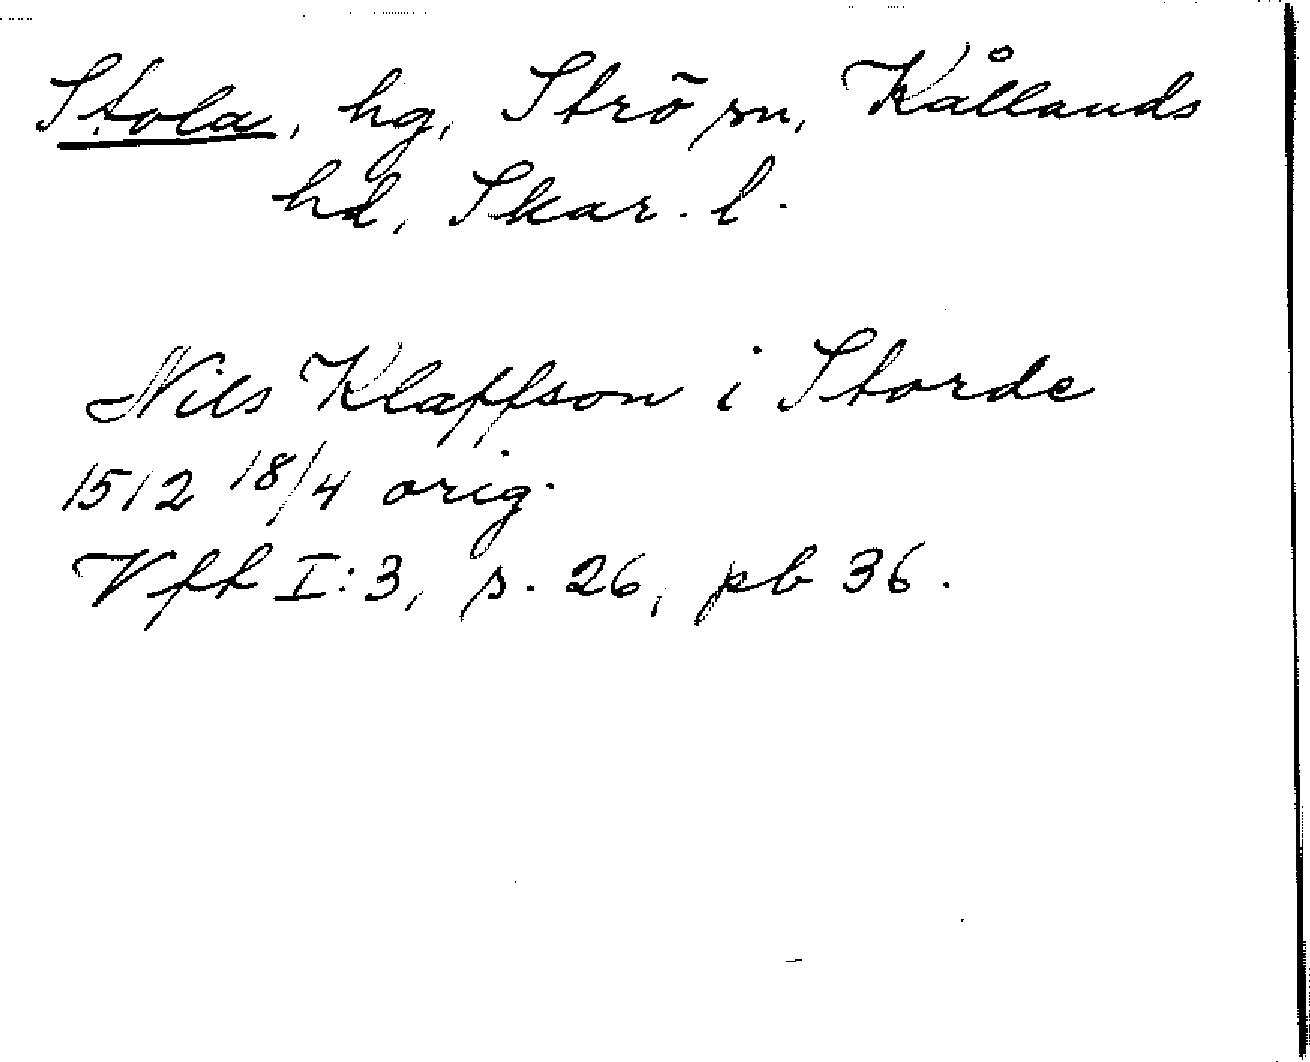 Stola, hg, Strö sn, Kållands
hd, Skar. l.
Nils Klaffson i Storde
1512 18/4 orig.
Vfft I:3, s. 26, pb 36.